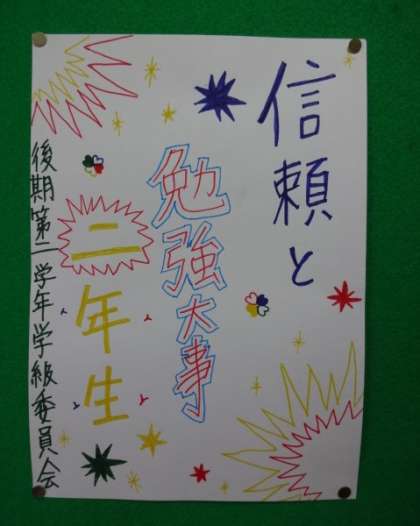 信頼と
勉強大事
二年生
後期第二学年学級委員会